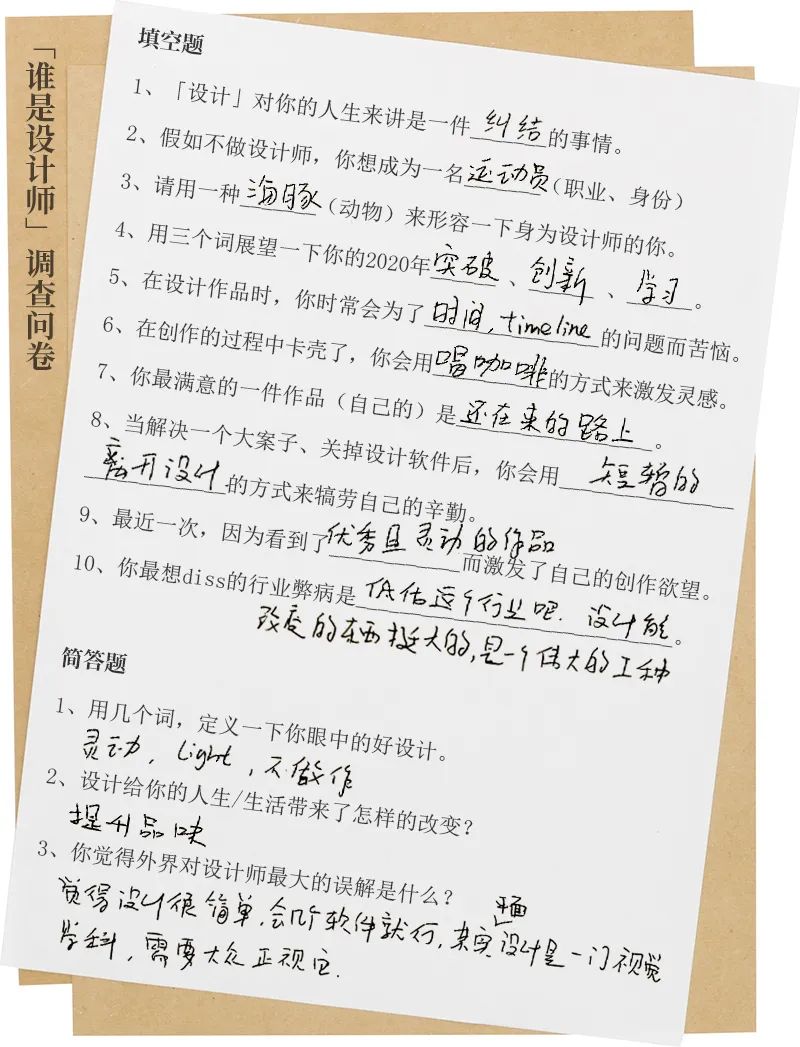 「谁是设计师」调查问卷
填空题
1、「设计」对你的人生来讲是一件 纠结 的事情。
2、假如不做设计师，你想成为一名运动员（职业、身份）
3、请用一种 海豚（动物）来形容一下身为设计师的你。
4、用三个词展望一下你的2020年突破、创新、学习。
5、在设计作品时，你时常会为了时间，timeline的问题而苦恼。
6、在创作的过程中卡壳了，你会用喝咖啡的方式来激发灵感。
7、你最满意的一件作品（自己的）是还在来的路上。
8、当解决一个大案子、关掉设计软件后，你会用 短暂的
离开设计的方式来犒劳自己的辛勤。
9、最近一次，因为看到了优秀且灵动的作品而激发了自己的创作欲望。
10、你最想diss的行业弊病是 低估这个行业吧. 设计能。
改变的东西挺大的,是一个伟大的工种
简答题
1、用几个词，定义一下你眼中的好设计。
灵动，light，不做作
2、设计给你的人生/生活带来了怎样的改变？
提升品味
3、你觉得外界对设计师最大的误解是什么？
觉得设计很简单,会几个软件就行,其实平面设计是一门视觉
学科，需要大众正视它.